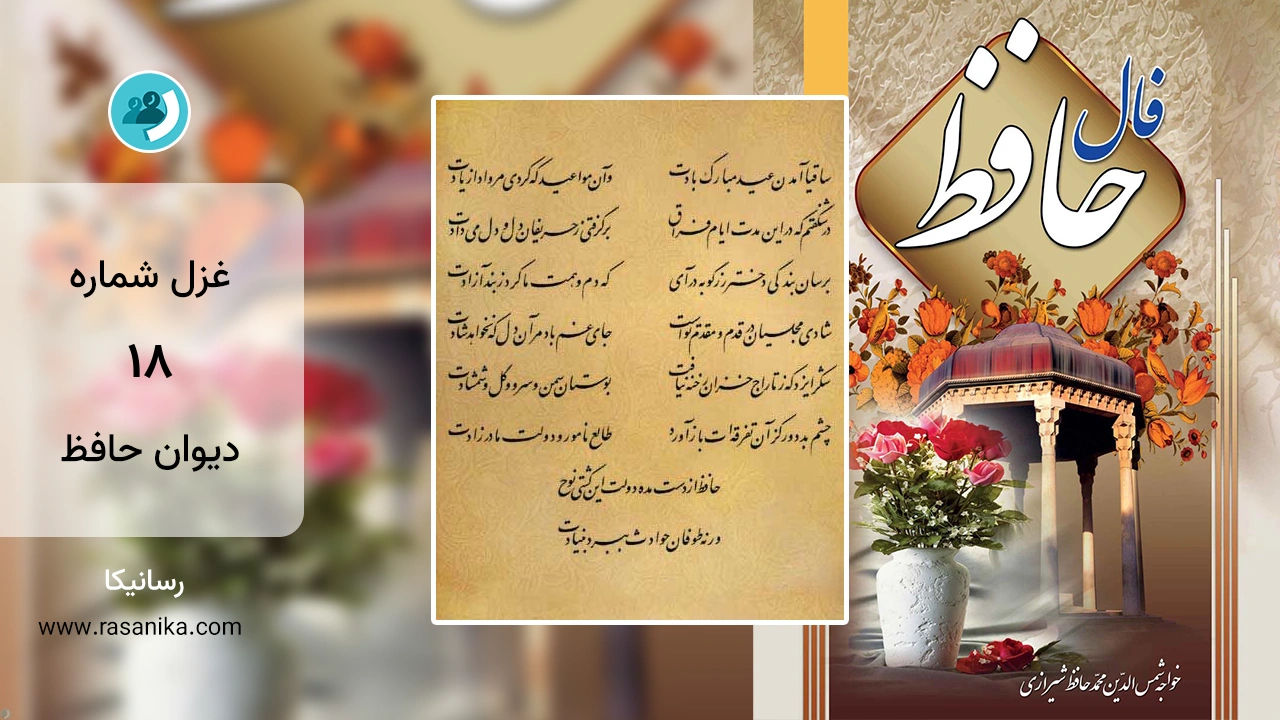 فال
حافظ
ساقیا آمدن عید مبارک بادت
وآن مواعید که کردی مرواد از یادت
در شگفتم که در این مدت ایام فراق
برگرفتی ز حریفان دل و دل می‌دادت
برسان بندگی دختر رز گو به درآی
که دم و همت ما کرد ز بند آزادت
شادی مجلسیان در قدم و مقدم توست
جای غم باد مر آن دل که نخواهد شادت
شکر ایزد که ز تاراج خزان رخنه نیافت
بوستان سمن و سرو و گل و شمشادت
چشم بد دور کز آن تفرقه‌ات بازآورد
طالع نامور و دولت مادرزادت
حافظ از دست مده دولت این کشتی نوح
ورنه طوفان حوادث ببرد بنیادت
غزل شماره
۱۸
دیوان حافظ
رسانیکا
www.rasanika.com
خواجه شمس الدّین محمّد حافظ شیرازی